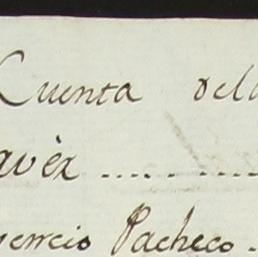 Cuenta dela
avèz ..... ....
Pacheco.